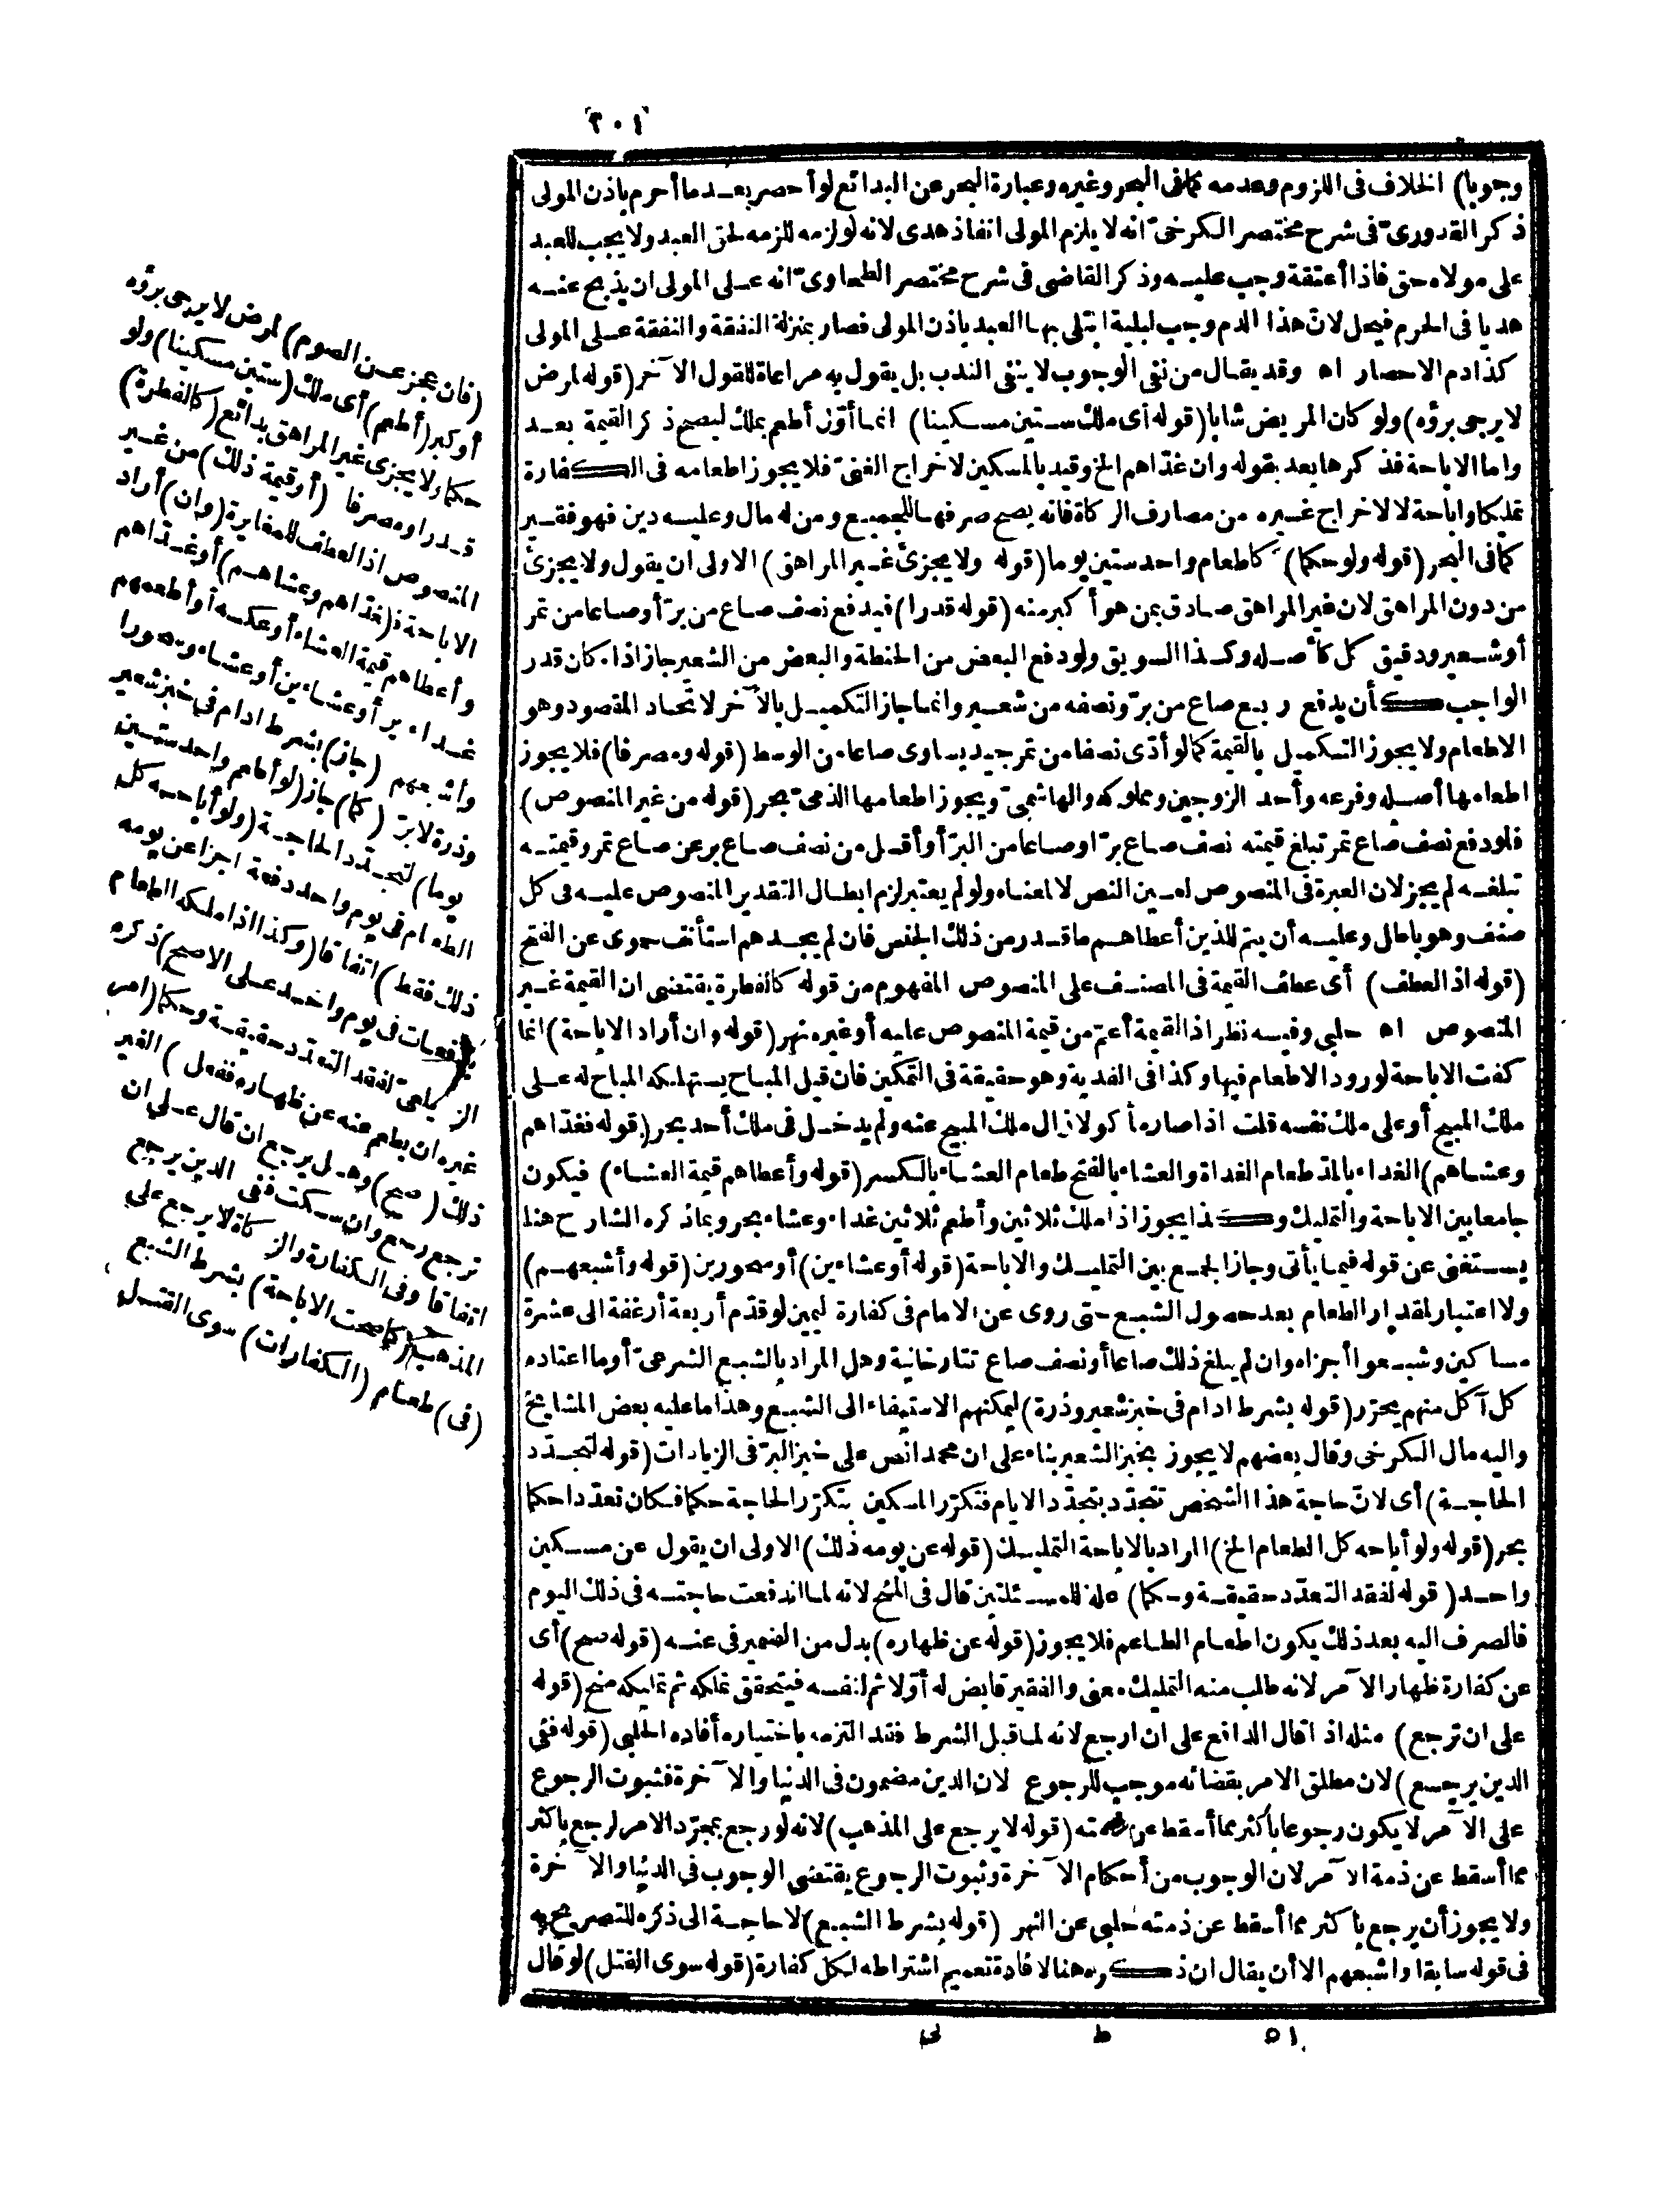 ٢٠١
وجوبا) الخلاف فى اللزوم وعدمه كما فى البحر وغيره وعبارة البحر عن البدائع لو أحصر بعد ما أحرم باذن المولى
ذكر القدورىّ فى شرح مختصر الكرخىّ انه لا يلزم المولى انفاذ هدى لانه لو لزمه للزمه لحق العبد ولا يجب للعبد
على مولاه حق فاذا أعتقه وجب عليه وذكر القاضى فى شرح مختصر الطحاوىّ انه على المولى ان يذبح عنه
هديا فى الحرم فيحل لانّ هذا الدم وجب لبلية ابتلى بها العبد باذن المولى فصار بمنزلة النفقة والنفقة على المولى
كذا دم الاحصار اه وقد يقال من نفى الوجوب لا ينفى الندب بل يقول به مراعاة للقول الآخر (قوله لمرض
لا يرجى برؤه) ولو كان المريض شابا (قوله أى ملك ستين مسكينا) انما أوّل أطعم بملك ليصح ذكر القيمة بعد
واما الاباحة فذكرها بعد بقوله وان غدّاهم الخ وقيد بالمسكين لاخراج الغنىّ فلا يجوز اطعامه فى الكفارة
تمليكا واباحة لا لاخراج غيره من مصارف الزكاة فانه يصح صرفها للجميع ومن له مال وعليه دين فهو فقير
كما فى البحر (قوله ولو حكما) كاطعام واحد ستين يوما (قوله ولا يجزئ غير المراهق) الاولى ان يقول ولا يجزئ
من دون المراهق لان غير المراهق صادق بمن هو أكبر منه (قوله قدرا) فيدفع نصف صاع من برّ أو صاعا من تمر
أو شعير ودقيق كل كأصله وكذا السويق ولو دفع البعض من الحنطة والبعض من الشعير جاز اذا كان قدر
الواجب كأن يدفع ربع صاع من برّ ونصفه من شعير وانما جاز التكميل بالآخر لاتحاد المقصود وهو
الاطعام ولا يجوز التكميل بالقيمة كما لو أدّى نصفا من تمر جيد يساوى صاعا من الوسط (قوله ومصرفا) فلا يجوز
اطعامها أصله وفرعه وأحد الزوجين ومملوكه والهاشمىّ ويجوز اطعامها الذمىّ بحر (قوله من غير المنصوص)
فلو دفع نصف صاع تمر تبلغ قيمته نصف صاع برّ او صاعا من البرّ أو أقل من نصف صاع بر عن صاع تمر وقيمته
تبلغه لم يجز لان العبرة فى المنصوص لعين النص لا لمعناه ولو لم يعتبر لزم ابطال التقدير المنصوص عليه فى كل
صنف وهو باطل وعليه أن يتم للذين أعطاهم ما قدر من ذلك الجنس فان لم يجدهم استأنف حموى عن الفتح
(قوله اذ العطف) أى عطف القيمة فى المصنف على المنصوص المفهوم من قوله كالفطرة يقتضى ان القيمة غير
المنصوص اه حلبى وفيه نظر اذ القيمة أعمّ من قيمة المنصوص عليه أو غيره نهر (قوله وان أراد الاباحة) انما
كفت الاباحة لورود الاطعام فيها وكذا فى الفدية وهو حقيقة فى التمكين فان قيل المباح يستهلكه المباح له على
ملك المبيح أو على ملك نفسه قلت اذا صار مأكولا زال ملك المبيح عنه ولم يدخل فى ملك أحد بحر (قوله فغدّاهم
وعشاهم) الغداء بالمدّ طعام الغداة والعشاء بالفتح طعام العشاء بالكسر (قوله وأعطاهم قيمة العشاء) فيكون
جامعا بين الاباحة والتمليك وكذا يجوز اذا ملك ثلاثين وأطعم ثلاثين غداء وعشاء بحر وبما ذكره الشارح هنا
يستغنى عن قوله فيما يأتى وجاز الجمع بين التمليك والاباحة (قوله أو عشاءين) أو سحورين (قوله وأشبعهم)
ولا اعتبار لمقدار الطعام بعد حصول الشبع حتى روى عن الامام فى كفارة ليمين لو قدّم أربعة أرغفة الى عشرة
مساكين وشبعوا أجزاه وان لم يبلغ ذلك صاعا أو نصف صاع تتارخانية وهل المراد بالشبع الشرعىّ أو ما اعتاده
كل آكل منهم يحرّر (قوله بشرط ادام فى خبز شعير وذرة) ليمكنهم الاستيفاء الى الشبع وهذا ما عليه بعض المشايخ
واليه مال الكرخى وقال بعضهم لا يجوز بخبز الشعير بناء على ان محمدا نص على خبز البرّ فى الزيادات (قوله لتجدّد
الحاجة) أى لانّ حاجة هذا الشخص تتجدّد بتجدّد الايام فتكرّر المسكين بتكرّر الحاجة حكما فكان تعدّدا حكما
بحر (قوله ولو أباحه كل الطعام الخ) المراد بالاباحة التمليك (قوله عن يومه ذلك) الاولى ان يقول عن مسكين
واحد (قوله لفقد التعدّد حقيقة وحكما) علة للمسئلتين قال فى المنح لانه لما اندفعت حاجته فى ذلك اليوم
فالصرف اليه بعد ذلك يكون اطعام الطاعم فلا يجوز (قوله عن ظهاره) بدل من الضمير فى عنه (قوله صح) أى
عن كفارة ظهار الآمر لانه طلب منه التمليك معنى والفقير قابض له أوّلا ثم لنفسه فيتحقق تملكه ثم تمليكه منح (قوله
على ان ترجع) مثله اذا قال الدافع على ان ارجع لانه لما قبل الشرط فقد التزمه باختياره أفاده الحلبى (قوله ففى
الدين يرجع) لان مطلق الامر بقضائه موجب للرجوع لان الدين مضمون فى الدنيا والآخرة فثبوت الرجوع
على الآمر لا يكون رجوعا بأكثر مما أسقط عن ذمته (قوله لا يرجع على المذهب) لانه لو رجع بمجرّد الامر لرجع باكثر
مما أسقط عن ذمة الآمر لان الوجوب من أحكام الآخرة وثبوت الرجوع يقتضى الوجوب فى الدنيا والآخرة
ولا يجوز أن يرجع باكثر مما أسقط عن ذمته حلبى عن النهر (قوله بشرط الشبع) لا حاجة الى ذكره للتصريح به
فى قوله سابقا واشبعهم الا أن يقال ان ذكره هنا لافادة تعميم اشتراطه لكل كفارة (قوله سوى القتل) لو قال
٥١ ط
(فان عجز عن الصوم) لمرض لا يرجى برؤه
أو كبر (أطعم) أى ملك (ستين مسكينا) ولو
حكما ولا يجزى غير المراهق بدائع (كالفطرة)
قدرا ومصرفا (أو قيمة ذلك) من غير
المنصوص اذ العطف للمغايرة (وان) أراد
الاباحة ف(غدّاهم وعشاهم) أو غدّاهم
وأعطاهم قيمة العشاء أو عكسه أو أطعمهم
غداءين أو عشاءين أو عشاء وسحورا
وأشبعهم (جاز) بشرط ادام فى خبز شعير
وذرة لا برّ (كما) جاز (لو أطعم واحد ستين
يوما) لتجدّد الحاجة (ولو أباحه كل
الطعام فى يوم واحد دفعة اجزأ عن يومه
ذلك فقط) اتفاقا (وكذا اذا ملكه الطعام
بدفعات فى يوم واحد على الاصح) ذكره
الزيلعىّ لفقد التعدّد حقيقة وحكما (امر
غيره ان يطعم عنه عن ظهاره ففعل) الغير
ذلك (صح) وهل يرجع ان قال على ان
ترجع رجع وان سكت ففى الدين يرجع
اتفاقا وفى الكفارة والزكاة لا يرجع على
المذهب (كما صحت الاباحة) بشرط الشبع
(فى) طعام (الكفارات) سوى القتل